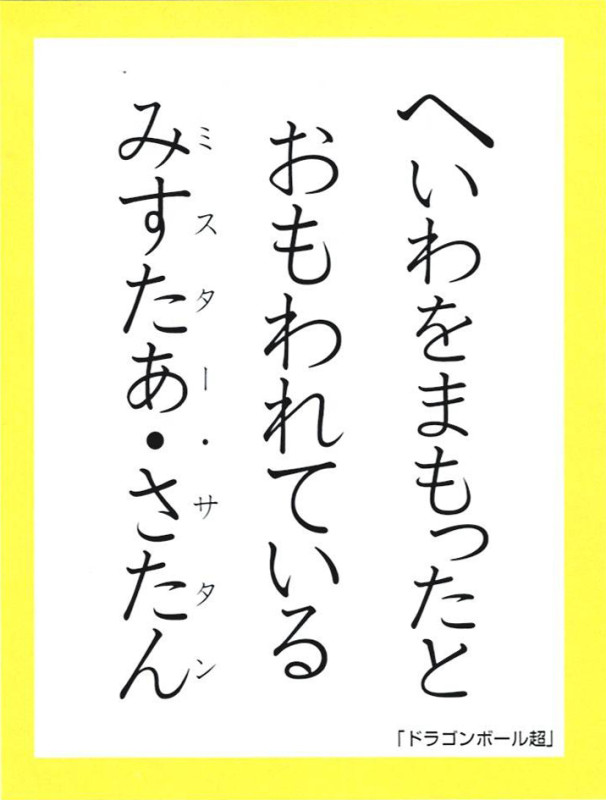 へいわをまもったと
おもわれている
みすたあ・さたん
ミスター・サタン
「ドラゴンボール超」